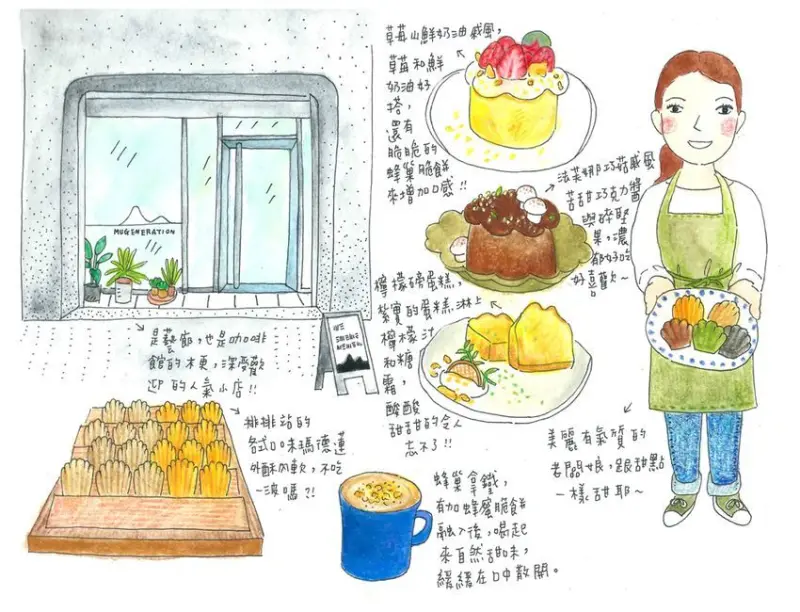 MUGENERATION
是藝廊,也是咖啡
館的木更,深受歡
迎的人氣小店!!
草莓山鮮奶油戚風,
草莓和鮮
奶油好
搭,
還有
脆脆的
蜂巢脆餅
來增加口感!!
法芙娜巧菇戚風
苦甜巧克力醬
與碎堅
果,濃
郁好吃
好喜歡~
檸檬磅蛋糕,
紮實的蛋糕淋上
檸檬汁
和糖
霜,
酸酸
甜甜的令人
忘不了!!
排排站的
各式口味瑪德蓮
外酥內軟,不吃
一波嗎?!
蜂巢拿鐵,
有加蜂蜜脆餅
融入後,喝起
來自然甜味,
緩緩在口中散開。
美麗有氣質的
老闆娘,跟甜點
一樣甜耶~